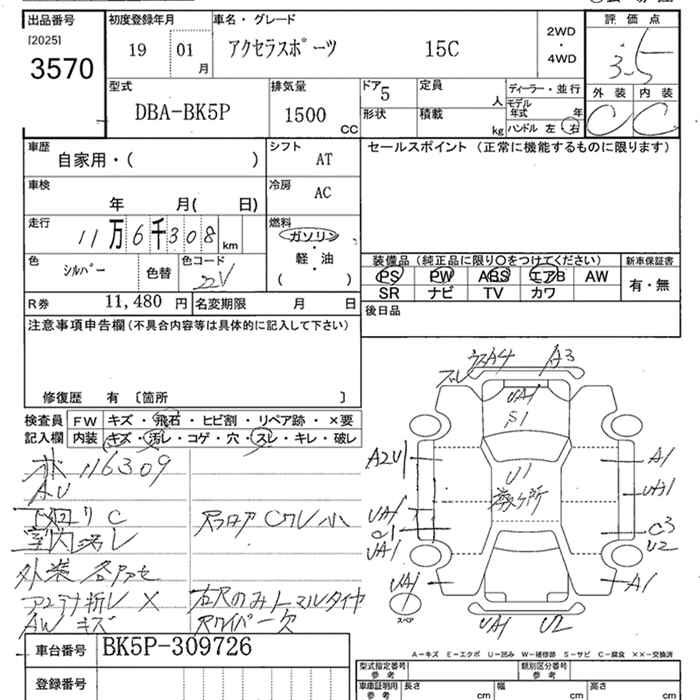 出品番号 初度登録年月 車名・グレード 評価点
[2025]
3570 19 01 月 アクセラスポーツ 15C 2WD・4WD 3.5
型式 排気量 ドア 5 定員 人 ディーラー・並行 外装 内装
DBA-BK5P 1500 CC 形状 積載 kg モデル年式 年 C C
ハンドル 左 右
車歴 自家用・( ) シフト AT セールスポイント (正常に機能するものに限ります)
車検 年 月( 日) 冷房 AC
走行 11万6千308 km 燃料 ガソリン・軽・油 ( )
色 シルバー 色替 色コード 22V
装備品 (純正品に限り○をつけてください) 新車保証書
PS PW ABS エアB AW 有・無
SR ナビ TV カワ
R券 11,480 円 名変期限 月 日 後日品
注意事項申告欄 (不具合内容等は具体的に記入して下さい)
修復歴 有 〔箇所 〕
検査員記入欄 FW キズ・飛石・ヒビ割・リペア跡・×要
内装 キズ・汚レ・コゲ・穴・スレ・キレ・破レ
116309
AU
下廻リ C
室内汚レ
外装 各
アンテナ折レ ×
AW キズ
右尺のみノーマルタイヤ
尺ワイパー欠
A4 A3
UA1
S1
A2U1 U1 A1
UA1 UA1
C1 C3
UA1 U2
UA1 A1
スペア UA1 U2
車台番号 BK5P-309726
登録番号
A-キズ E-エクボ U-凹み W-補修跡 S-サビ C-腐食 ××-交換済
型式指定番号 参考 類別区分番号 参考
車庫証明用 参考 長さ cm 幅 cm 高さ cm